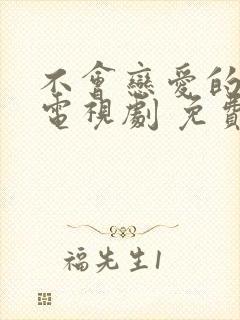 不會戀愛的
電視劇 免費
福先生1